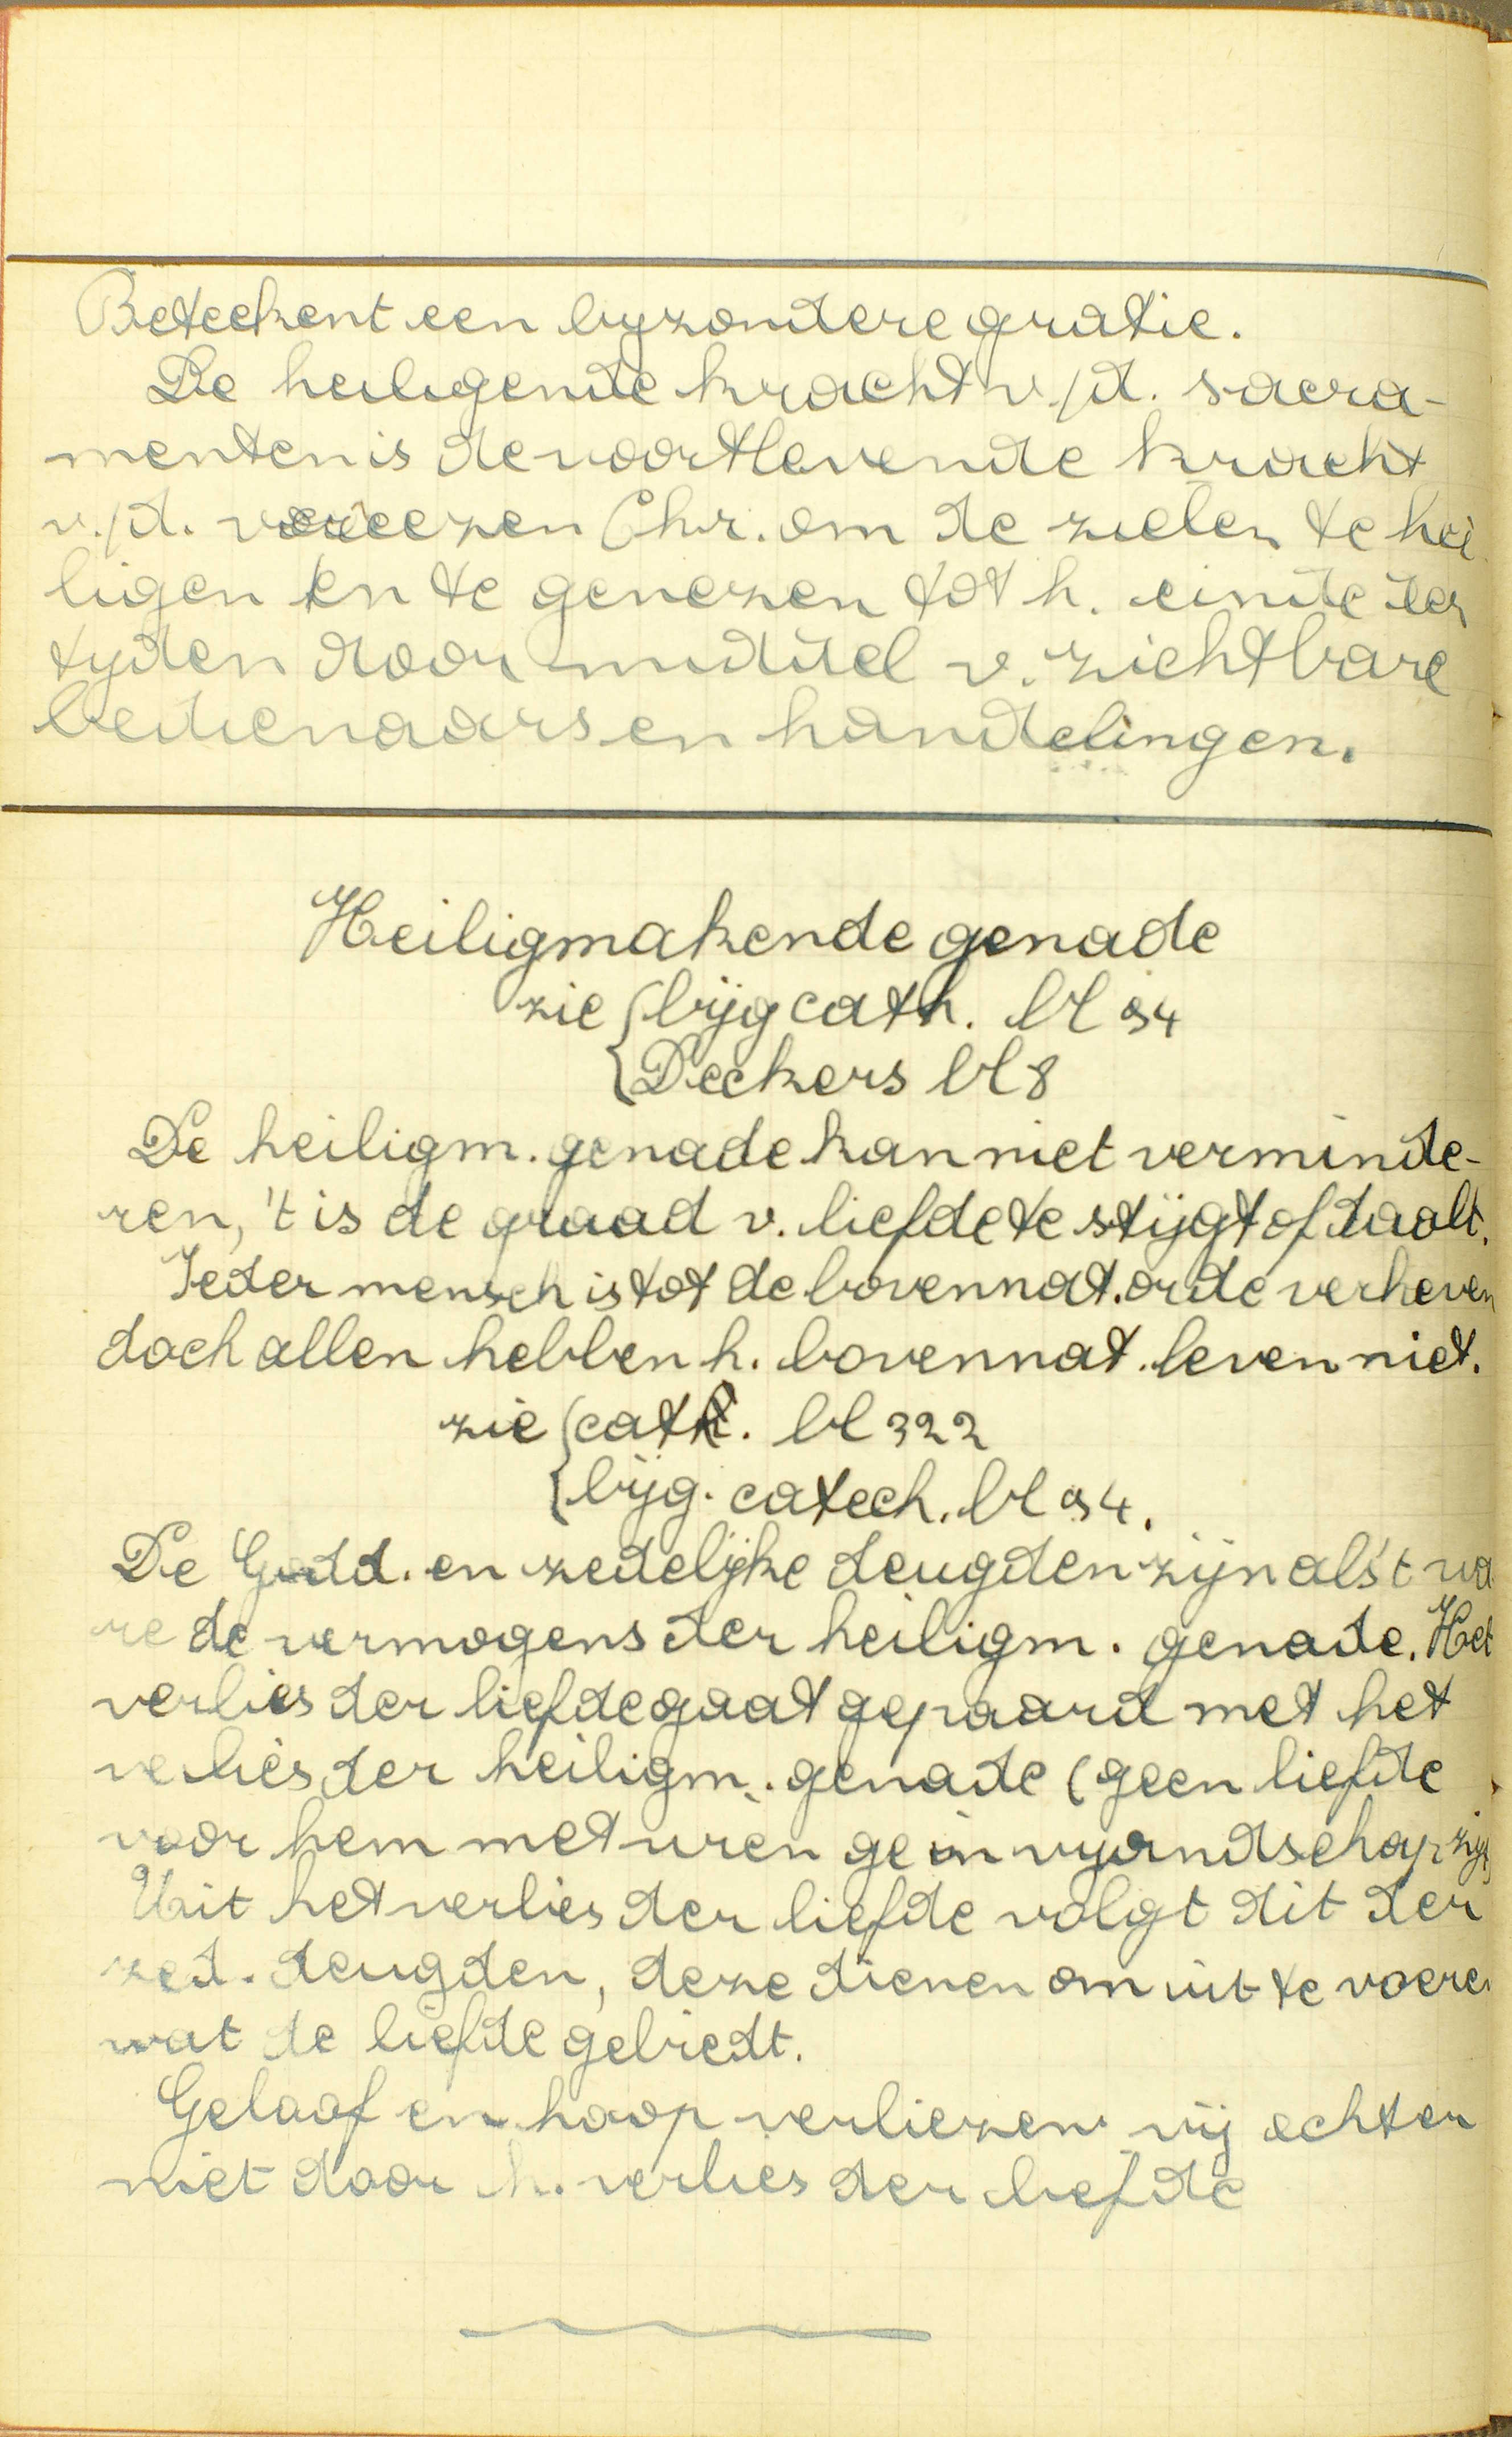 Beteekent een byzondere gratie.
De heiligende kracht v/d. sacra-
menten is de voortlevende kracht
v./d. verrezen Chr. om de zielen te hei
ligen en te genezen tot h. einde der
tyden door middel v. zichtbare
bedienaars en handelingen.
Heiligmakende genade
zie { bijg cath. bl 94
{ Deckers bl 8
De heiligm. genade kan niet verminde-
ren, 't is de graad v. liefde te stijgt of daalt.
Ieder mensch is tot de bovennat. orde verheven
doch allen hebben h. bovennat. leven niet.
zie { cath. bl 322
{ bijg. catech. bl 94.
De Godd. en zedelijke deugden zijn als 't wa
re de vermogens der heiligm. genade. Het
verlies der liefde gaat gepaard met het
verlies der heiligm. genade (geen liefde
voor hem met wien ge in vyandschap zijt
Uit het verlies der liefde volgt dit der
zed. deugden, deze dienen om uit te voeren
wat de liefde gebiedt.
Geloof en hoop verliezen wij echter
niet door h. verlies der liefde